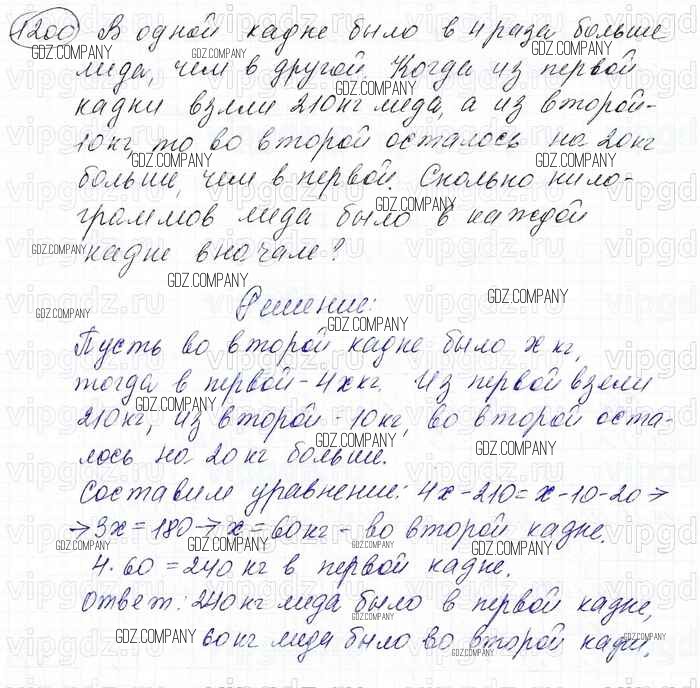 1200 В одной кадке было в 4 раза больше
меда, чем в другой. Когда из первой
кадки взяли 210 кг меда, а из второй-
10 кг, то во второй осталось на 20 кг
больше, чем в первой. Сколько кило-
граммов меда было в каждой
кадке вначале?
Решение:
Пусть во второй кадке было x кг,
тогда в первой - 4x кг. Из первой взяли
210 кг, из второй - 10 кг, во второй оста-
лось на 20 кг больше.
Составим уравнение: 4x-210=x-10-20→
→3x=180→x=60 кг - во второй кадке.
4·60=240 кг в первой кадке.
Ответ: 240 кг меда было в первой кадке,
60 кг меда было во второй кадке.